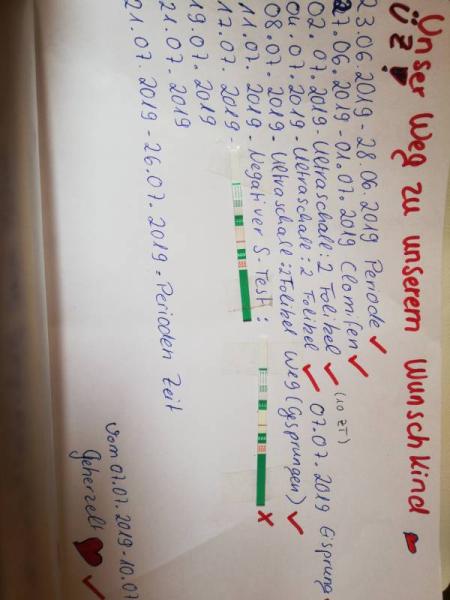 Unser Weg zu unserem Wunschkind
ÜZ
23.06.2019 - 28.06.2019 Periode ✓
27.06.2019 - 01.07.2019 Clomifen ✓
02.07.2019 - Ultraschall: 2 Folikel ✓ (10 ZT)
04.07.2019 - Ultraschall: 2 Folikel ✓ 07.07.2019 Eisprung
08.07.2019 - Ultraschall: 2 Folikel weg (Gesprungen) ✓
11.07.2019 - Negativer S-Test: x
17.07.2019 -
19.07.2019
21.07.2019
21.07.2019 - 26.07.2019 = Perioden Zeit
vom 07.07.2019 - 10.07
Geherzelt ✓